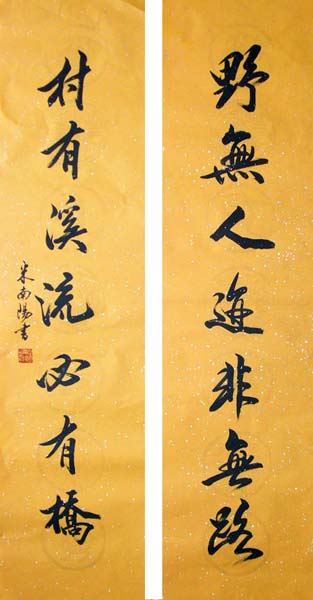 野無人迹非無路
村有溪流必有橋
米南陽書